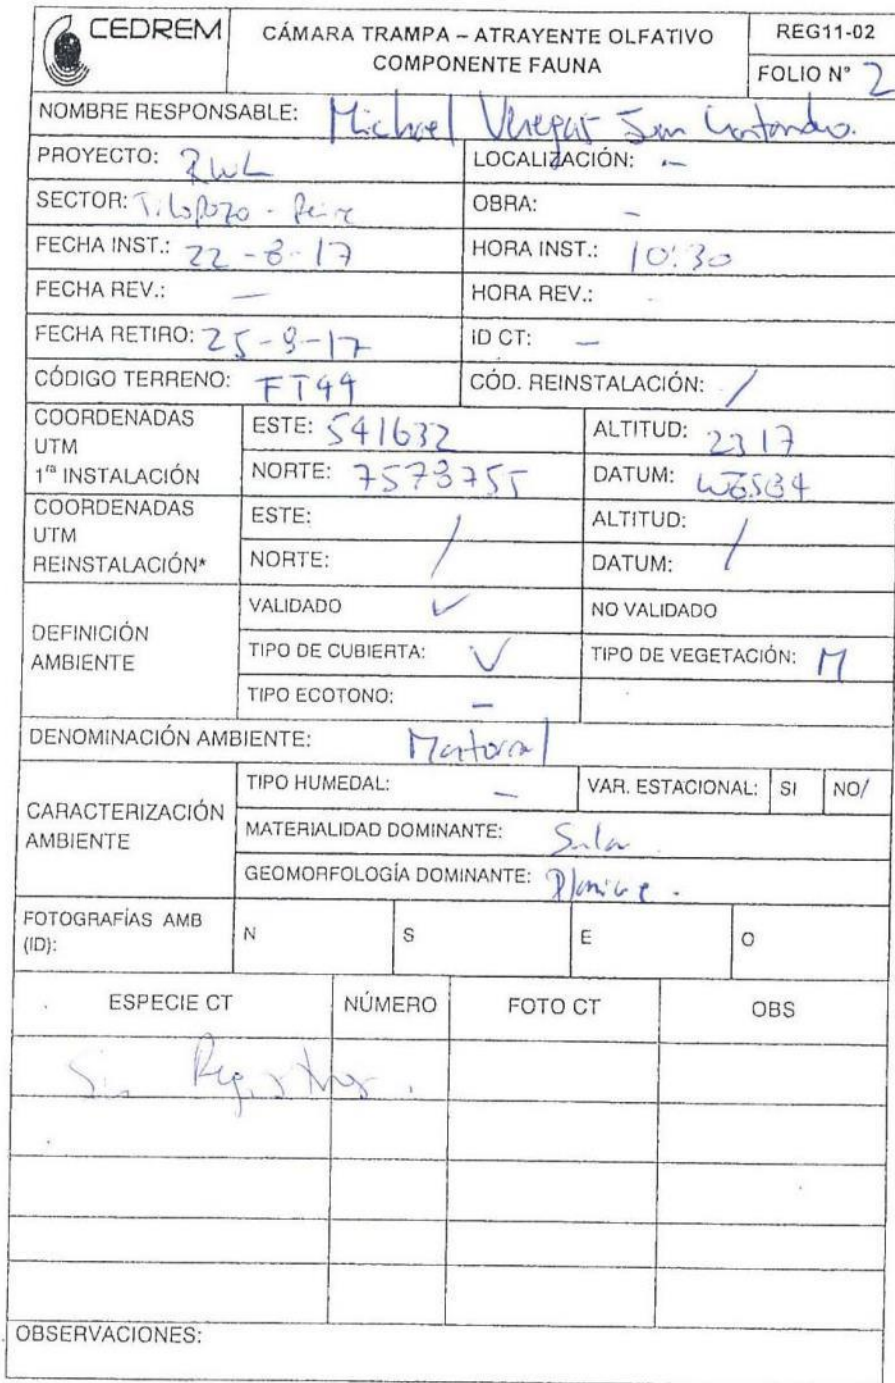 CEDREM
CÁMARA TRAMPA – ATRAYENTE OLFATIVO
COMPONENTE FAUNA
REG11-02
FOLIO N° 2
NOMBRE RESPONSABLE: Michael Venegas
PROYECTO: RWL
LOCALIZACIÓN: -
SECTOR: Tilopozo -
OBRA: -
FECHA INST.: 22-8-17
HORA INST.: 10:30
FECHA REV.: -
HORA REV.: -
FECHA RETIRO: 25-8-17
ID CT: -
CÓDIGO TERRENO: FT44
CÓD. REINSTALACIÓN: /
COORDENADAS
UTM
1ra INSTALACIÓN
ESTE: 541632
ALTITUD: 2317
NORTE: 7578755
DATUM: WGS84
COORDENADAS
UTM
REINSTALACIÓN*
ESTE: /
ALTITUD: /
NORTE:
DATUM:
DEFINICIÓN
AMBIENTE
VALIDADO ✓
NO VALIDADO
TIPO DE CUBIERTA: V
TIPO DE VEGETACIÓN: M
TIPO ECOTONO: -
DENOMINACIÓN AMBIENTE: Matorral
CARACTERIZACIÓN
AMBIENTE
TIPO HUMEDAL: -
VAR. ESTACIONAL: SI NO/
MATERIALIDAD DOMINANTE: Salar
GEOMORFOLOGÍA DOMINANTE: Planicie.
FOTOGRAFÍAS AMB
(ID):
N S E O
ESPECIE CT NÚMERO FOTO CT OBS
Sin Registros.
OBSERVACIONES: